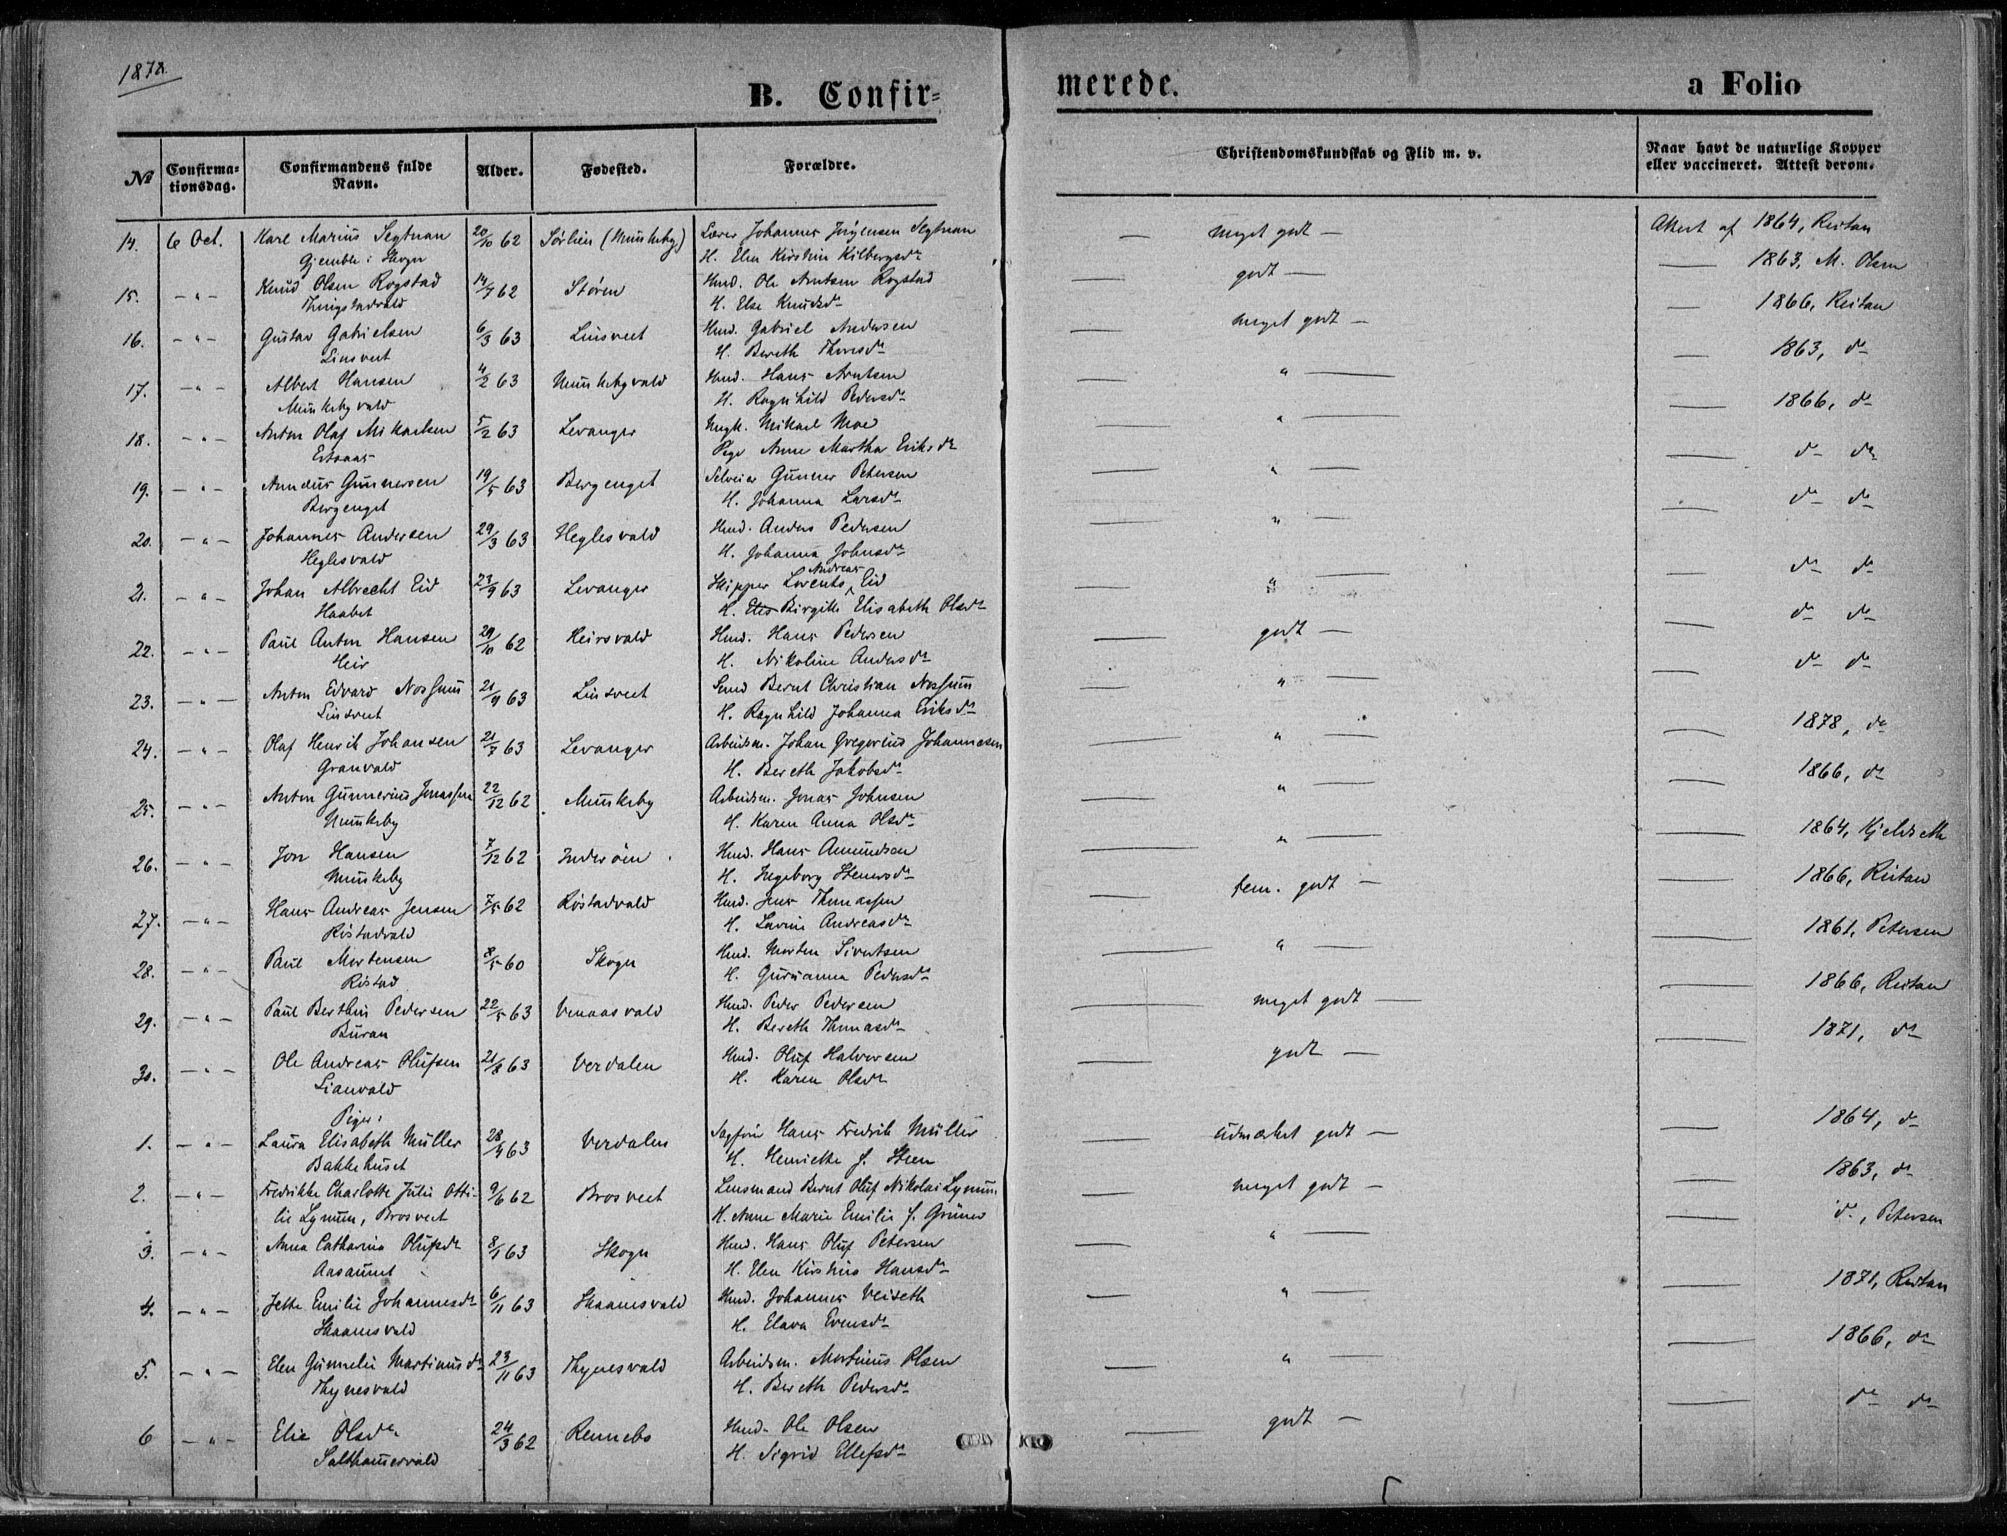 1878.
B. Confir=
merede.
a Folio
№
Confirma-
tionsdag.
Confirmandens fulde
Navn.
Alder.
Fødested.
Forældre.
Christendomskundskab og Flid m. v.
Naar havt de naturlige Kopper
eller vaccineret. Attest derom.
14. 6 Oct. Karl Marius Segtnan 20/10 62 Sørlien (Munkeby) Lærer Johannes Jörgensen Segtnan — meget godt — Attest af 1864, Reitan
Gjemble i Skogn H. Elen Kirstine Kilbergsdr
15. — " — Knud Olsen Rogstad 14/7 62 Støren Hmd. Ole Arntsen Rogstad — godt — — 1863, M. Olsen
Tingstadvald H. Else Knudsdr
16. — " — Gustav Gabrielsen 6/3 63 Linsveet Hmd. Gabriel Andersen — meget godt — — 1866, Reitan
Linsveet H. Bereth Thomsdr
17. — " — Albert Hansen 4/2 63 Munkebyvald Hmd. Hans Arntsen — " — — 1863, do
Munkebyvald H. Ragnhild Pedersdr
18. — " — Anton Olaf Mikaelsen 5/2 63 Levanger Ungk. Mikael Moe — " — — 1866, do
Pige Anne Martha Eriksdr
19. — " — Amdus Gunnersen 19/5 63 Bergenget Selveier Gunner Petersen — " — — do do
Bergenget H. Johanna Larsdr
20. — " — Johannes Andersen 29/3 63 Heglesvald Hmd. Anders Pedersen — " — — do do
Heglesvald H. Johanna Johnsdr
21. — " — Johan Albrecht Eid 23/9 63 Levanger Skipper Lorents Andreas Eid — " — — do do
Haabet H. Elis Birgitte Elisabeth Olsdr
22. — " — Paul Anton Hansen 29/10 62 Heirsvald Hmd. Hans Pedersen — godt — — do do
Heir H. Nikoline Andersdr
23. — " — Anton Edvard Nossum 21/9 63 Linsveet Bernt Christian Nossum — " — — do do
Linsveet H. Ragnhild Johanna Eriksdr
24. — " — Olaf Henrik Johansen 21/7 63 Levanger Arbeidsm. Johan Gregorius Johannesen — " — — 1878, do
Granvald H. Bereth Jakobsdr
25. — " — Anton Gunnerius Jonassen 22/12 62 Munkeby Arbeidsm. Jonas Johnsen — " — — 1866, do
Munkeby H. Karen Anna Olsdr
26. — " — Jon Hansen 7/12 62 Inderøen Hmd. Hans Amundsen — " — — 1864, Kjeldseth
Munkeby H. Ingeborg Stenersdr
27. — " — Hans Andreas Jensen 7/5 62 Röstadvald Hmd. Jens Thomassen — tem. godt — — 1866, Reitan
Röstadvald H. Lavine Andreasdr
28. — " — Paul Mortensen 8/5 60 Skogn Hmd. Morten Sivertsen — " — — 1861, Petersen
Röstad H. Gurianna Pedersdr
29. — " — Paul Berthin Pedersen 22/5 63 Venaasvald Hmd. Peder Pedersen — meget godt — — 1866, Reitan
Buran H. Bereth Thomasdr
30. — " — Ole Andreas Olufsen 21/8 63 Verdalen Hmd. Oluf Halvorsen — godt — — 1871, do
Lianvald H. Karen Olsdr
Piger.
1. — " — Laura Elisabeth Müller 28/4 63 Verdalen Sagfører Hans Fredrik Müller — udmærket godt — — 1864, do
Bakkehuset H. Henriette f. Steen
2. — " — Fredrikke Charlotte Julie Otti- 9/6 62 Brosveet Lensmand Bernt Oluf Nikolai Lynum — meget godt — — 1863, do
lie Lynum, Brosveet H. Anne Marie Emilie f. Grüner
3. — " — Anna Catharina Olufsdr 8/1 63 Skogn Hmd. Hans Oluf Petersen — " — — do, Petersen
Aasaunet H. Elen Kirstine Hansdr
4. — " — Jette Emilie Johannesdr 6/11 63 Skaanesvald Hmd. Johannes Veiseth — " — — 1871, Reitan
Skaanesvald H. Elava Evensdr
5. — " — Elen Gunnelie Martinusdr 23/11 63 Thynesvald Arbeidsm. Martinus Olsen — " — — 1866, do
Thynesvald H. Bereth Pedersdr
6 — " — Elie Olsdr 24/3 62 Rennebo Hmd. Ole Olsen — godt — — do do
Salthamervald H. Sigrid Ellefsdr